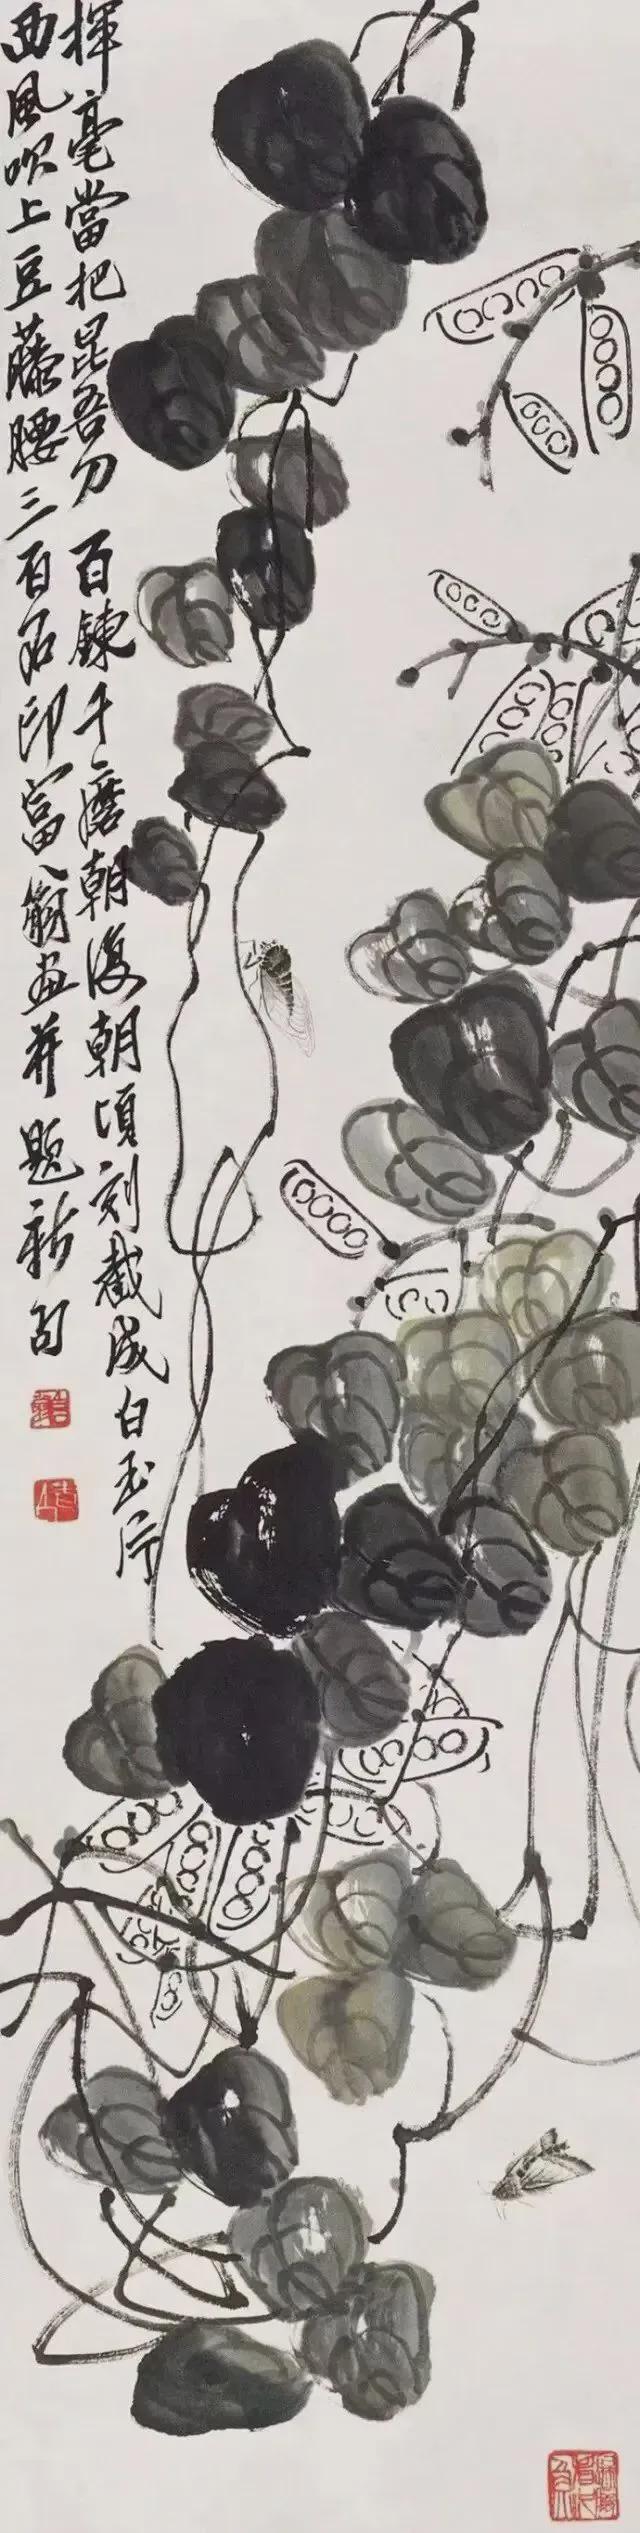 揮毫當把昆吾刀百鍊千磨朝復朝頃刻截成白玉片
西風吹上豆藤腰三百石印富翁画并題新句